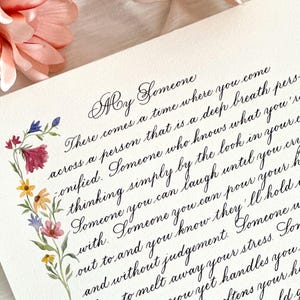 My Someone
There comes a time where you come
across a person that is a deep breath
onified. Someone who knows what you
thinking simply by the look in your
Someone you can laugh until you
with. Someone you can pour your
out to and you know they'll hold
and without judgement. Someone
to melt away your stress.
you yet handles you
ftens your